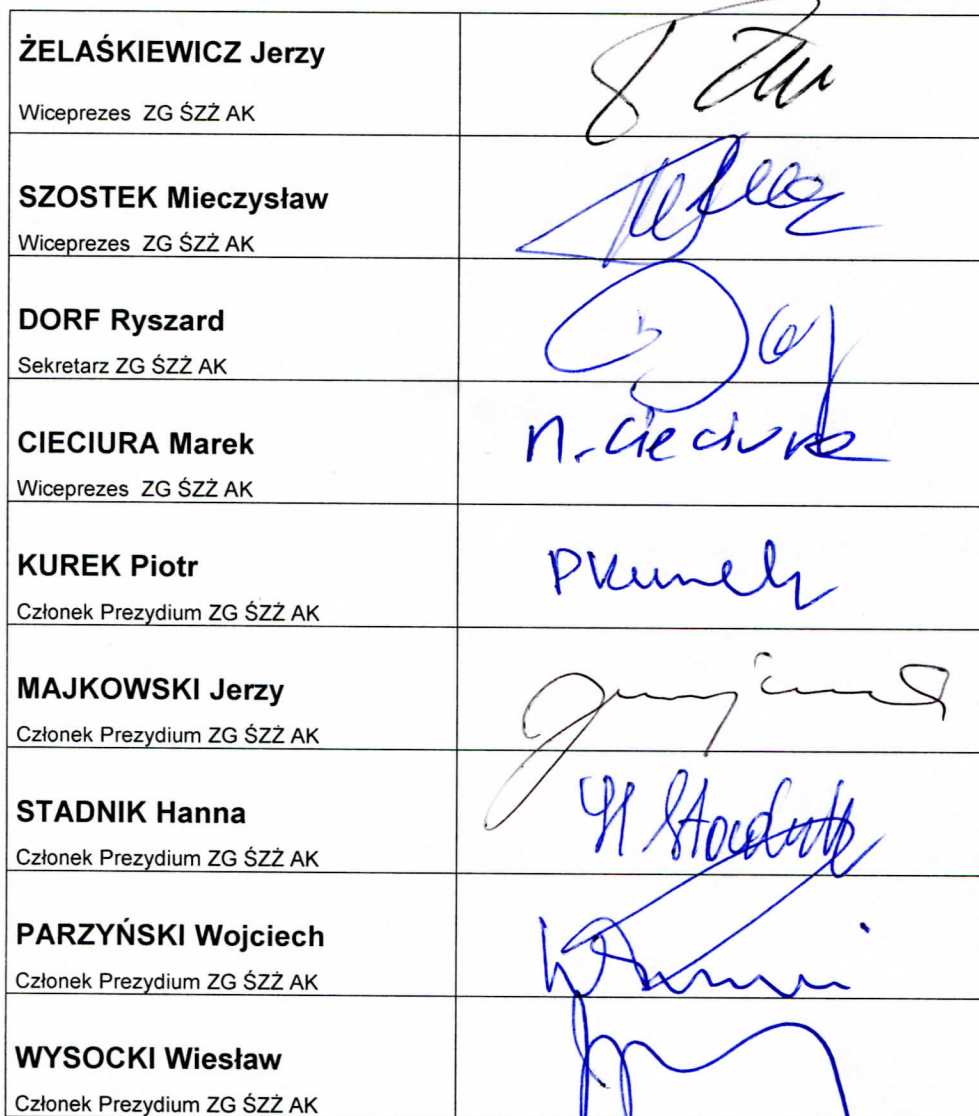 ŻELAŚKIEWICZ Jerzy
Wiceprezes ZG ŚZŻ AK
SZOSTEK Mieczysław
Wiceprezes ZG ŚZŻ AK
DORF Ryszard
Sekretarz ZG ŚZŻ AK
CIECIURA Marek
M. Cieciura
Wiceprezes ZG ŚZŻ AK
KUREK Piotr
PKurek
Członek Prezydium ZG ŚZŻ AK
MAJKOWSKI Jerzy
Członek Prezydium ZG ŚZŻ AK
STADNIK Hanna
H Stadnik
Członek Prezydium ZG ŚZŻ AK
PARZYŃSKI Wojciech
Członek Prezydium ZG ŚZŻ AK
WYSOCKI Wiesław
Członek Prezydium ZG ŚZŻ AK